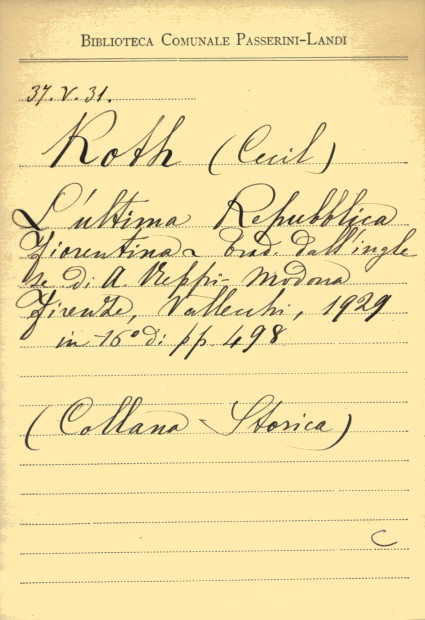 BIBLIOTECA COMUNALE PASSERINI-LANDI
37.V.31.
Roth (Cecil)
L'ultima Repubblica
Fiorentina - trad. dall'ingle
se di A. Neppi- Modona
Firenze, Vallecchi, 1929
in 16° di pp. 498
(Collana Storica)
C